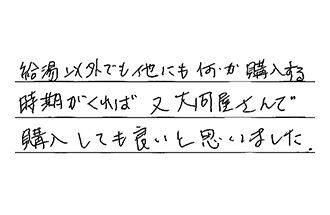 給湯以外でも他にも何か購入する
時期がくれば又大河屋さんで
購入しても良いと思いました.